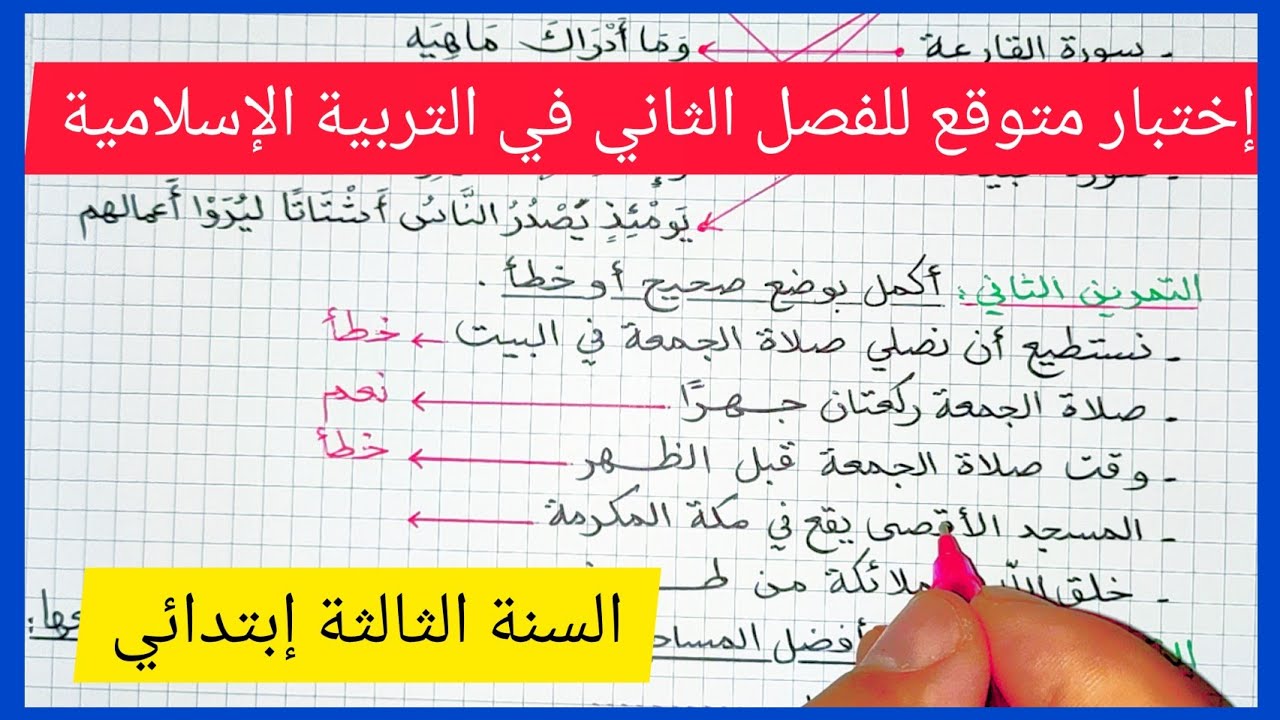 - سورة القارعة وَمَا أَدْرَاكَ مَاهِيَه
إختبار متوقع للفصل الثاني في التربية الإسلامية
يَوْمَئِذٍ يَصْدُرُ النَّاسُ أَشْتَاتًا لِيُرَوْا أَعمالهم
التمرين الثاني: أكمل بوضع صحيح أو خطأ.
- نستطيع أن نصلي صلاة الجمعة في البيت خطأ
- صلاة الجمعة ركعتان جهرًا نعم
- وقت صلاة الجمعة قبل الظهر خطأ
- المسجد الأقصى يقع في مكة المكرمة
- خلق الله ملائكة من
أفضل المساجد
السنة الثالثة إبتدائي